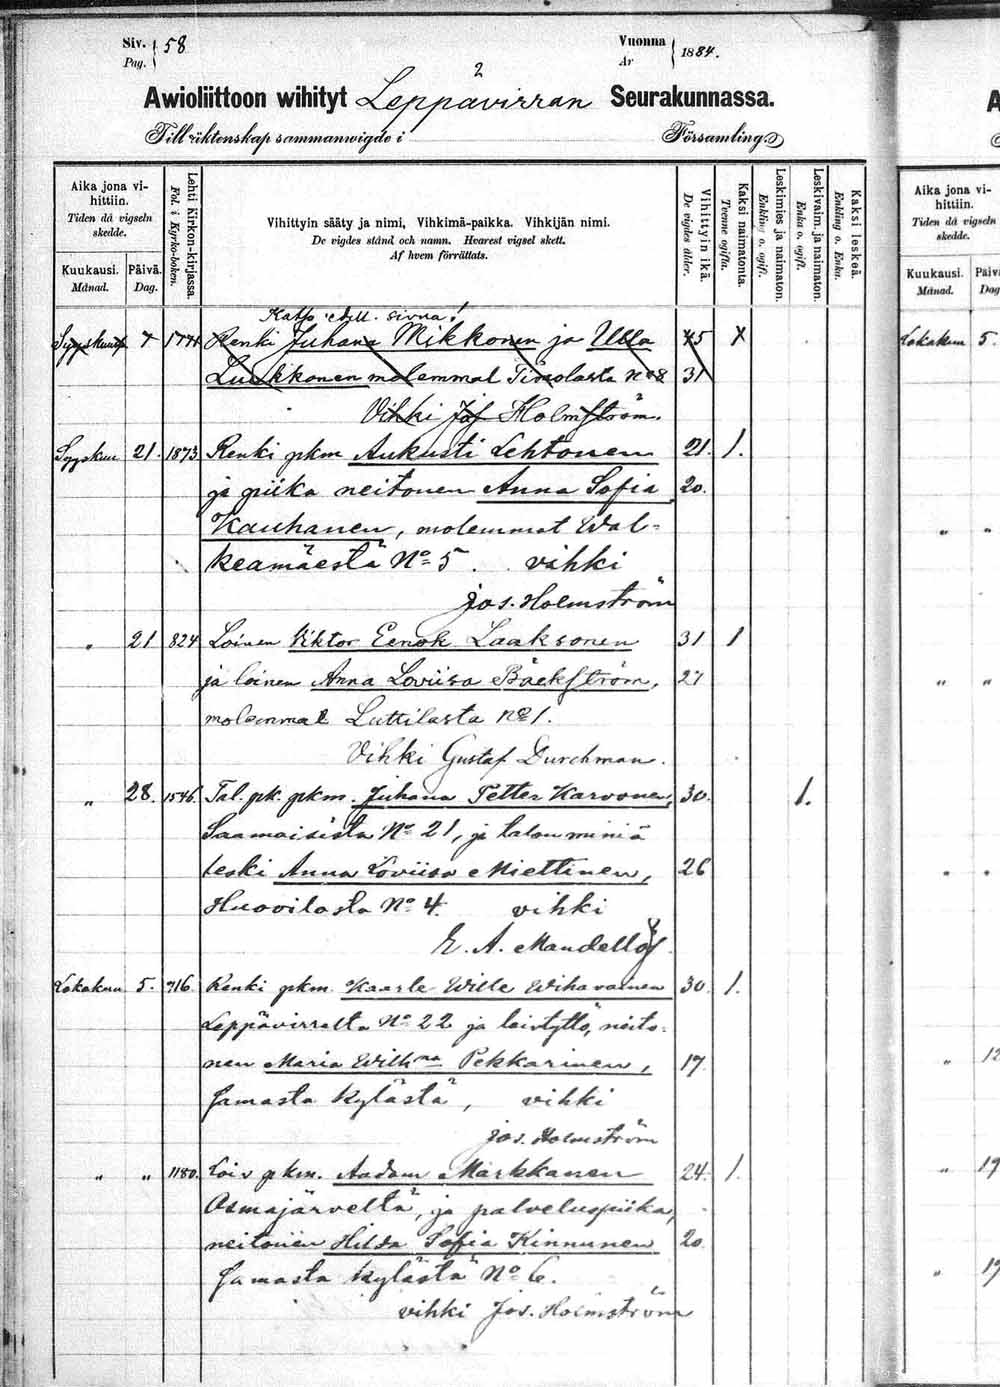 Siv. 58
Pag.
Vuonna 1884.
År
2
Awioliittoon wihityt Leppävirran Seurakunnassa.
Till äktenskap sammanwigde i Församling.
Aika jona vihittiin.
Tiden då vigseln skedde.
Kuukausi. Månad.
Päivä. Dag.
Lehti Kirkon-kirjassa.
Fol. i Kyrko-boken.
Vihittyin sääty ja nimi, Vihkimä-paikka. Vihkijän nimi.
De vigdes stånd och namn. Hvarest vigsel skett.
Af hvem förrättats.
Vihittyin ikä.
De vigdes ålder.
Kaksi naimatonta.
Tvenne ogifta.
Leskimies ja naimaton.
Enkling o. ogift.
Leskivaim. ja naimaton.
Enka o. ogift.
Kaksi leskeä.
Enkling o. Enka.
Katso edell. sivua!
Syyskuu 7 Renki Juhana Mikkonen ja Ulla 45 X
Luukkonen molemmat Timolasta No 8 31
Vihki Jos Holmström.
Syyskuu 21. 1873 Renki pkm Aukusti Lehtonen 21. 1.
ja piika neitonen Anna Sofia 20.
Kauhanen, molemmat Wal-
keamäestä No 5. vihki
Jos. Holmström
" 21 824 Loinen Viktor Eenok Laaksonen 31 1
ja loinen Anna Loviisa Bäckström, 27
molemmat Luttilasta No 1.
Vihki Gustaf Durchman.
" 28. 1546. Tal. pk. pkm. Juhana Petter Karvonen, 30. 1.
Saamaisista No 21, ja talon miniä
leski Anna Loviisa Miettinen, 26
Huovilasta No 4. vihki
E. A. Mandellöf
Lokakuu 5. 916. Renki pkm. Kaarle Wille Wihavainen 30. 1.
Leppävirralta No 22 ja loistyttö, neito-
nen Maria Wilhna Pekkarinen, 17
samasta kylästä, vihki
Jos. Holmström
" " 1180. Lois pkm. Aadam Markkanen 24. 1.
Osmajärveltä, ja palveluspiika,
neitonen Hilda Sofia Kinnunen 20.
samasta kylästä No 6.
vihki Jos. Holmström
A
Aika jona vihittiin.
Tiden då vigseln skedde.
Kuukausi. Månad.
Päivä
Dag
Lokakuu 5.
" "
" "
" "
" 12
" 19
" 19